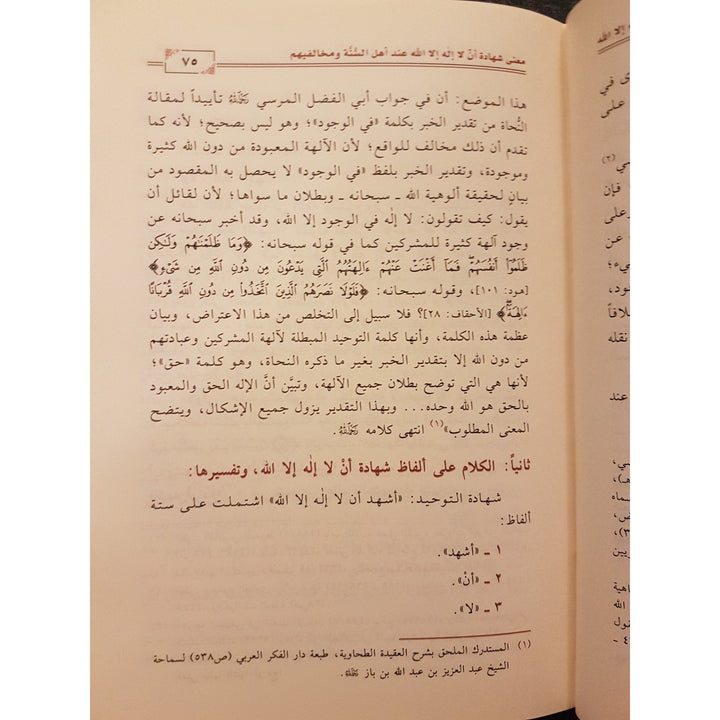 معنى شهادة أنْ لا إلٰه إلا الله عند أهل السُّنَّة ومخالفيهم
٧٥
هذا الموضع: أن في جواب أبي الفضل المرسي رَحِمَهُ اللهُ تأييداً لمقالة
النُّحاة من تقدير الخبر بكلمة «في الوجود»؛ وهو ليس بصحيح؛ لأنه كما
تقدم أن ذلك مخالف للواقع؛ لأن الآلهة المعبودة من دون الله كثيرة
وموجودة، وتقدير الخبر بلفظ «في الوجود» لا يحصل به المقصود من
بيانٍ لحقيقة ألوهية الله ـ سبحانه ـ وبطلان ما سواها؛ لأن لقائل أن
يقول: كيف تقولون: لا إلٰه في الوجود إلا الله، وقد أخبر سبحانه عن
وجود آلهة كثيرة للمشركين كما في قوله سبحانه: ﴿وَمَا ظَلَمْنَٰهُمْ وَلَٰكِن
ظَلَمُوٓا۟ أَنفُسَهُمْ ۖ فَمَآ أَغْنَتْ عَنْهُمْ ءَالِهَتُهُمُ ٱلَّتِى يَدْعُونَ مِن دُونِ ٱللَّهِ مِن شَىْءٍ﴾
[هود: ١٠١]، وقوله سبحانه: ﴿فَلَوْلَا نَصَرَهُمُ ٱلَّذِينَ ٱتَّخَذُوا۟ مِن دُونِ ٱللَّهِ قُرْبَانًا
ءَالِهَةًۢ ۖ﴾ [الأحقاف: ٢٨]؟ فلا سبيل إلى التخلص من هذا الاعتراض، وبيان
عظمة هذه الكلمة، وأنها كلمة التوحيد المبطلة لآلهة المشركين وعبادتهم
من دون الله إلا بتقدير الخبر بغير ما ذكره النحاة، وهو كلمة «حق»؛
لأنها هي التي توضح بطلان جميع الآلهة، وتبيَّن أنَّ الإله الحق والمعبود
بالحق هو الله وحده... وبهذا التقدير يزول جميع الإشكال، ويتضح
المعنى المطلوب»(١) انتهى كلامه رَحِمَهُ اللهُ.
ثانياً: الكلام على ألفاظ شهادة أنْ لا إلٰه إلا الله، وتفسيرها:
شهادة التوحيد: «أشهد أن لا إلٰه إلا الله» اشتملت على ستة
ألفاظ:
١ ـ «أشهد».
٢ ـ «أنْ».
٣ ـ «لا».
(١) المستدرك الملحق بشرح العقيدة الطحاوية، طبعة دار الفكر العربي (ص٥٣٨) لسماحة
الشيخ عبد العزيز بن عبد الله بن باز رَحِمَهُ اللهُ.